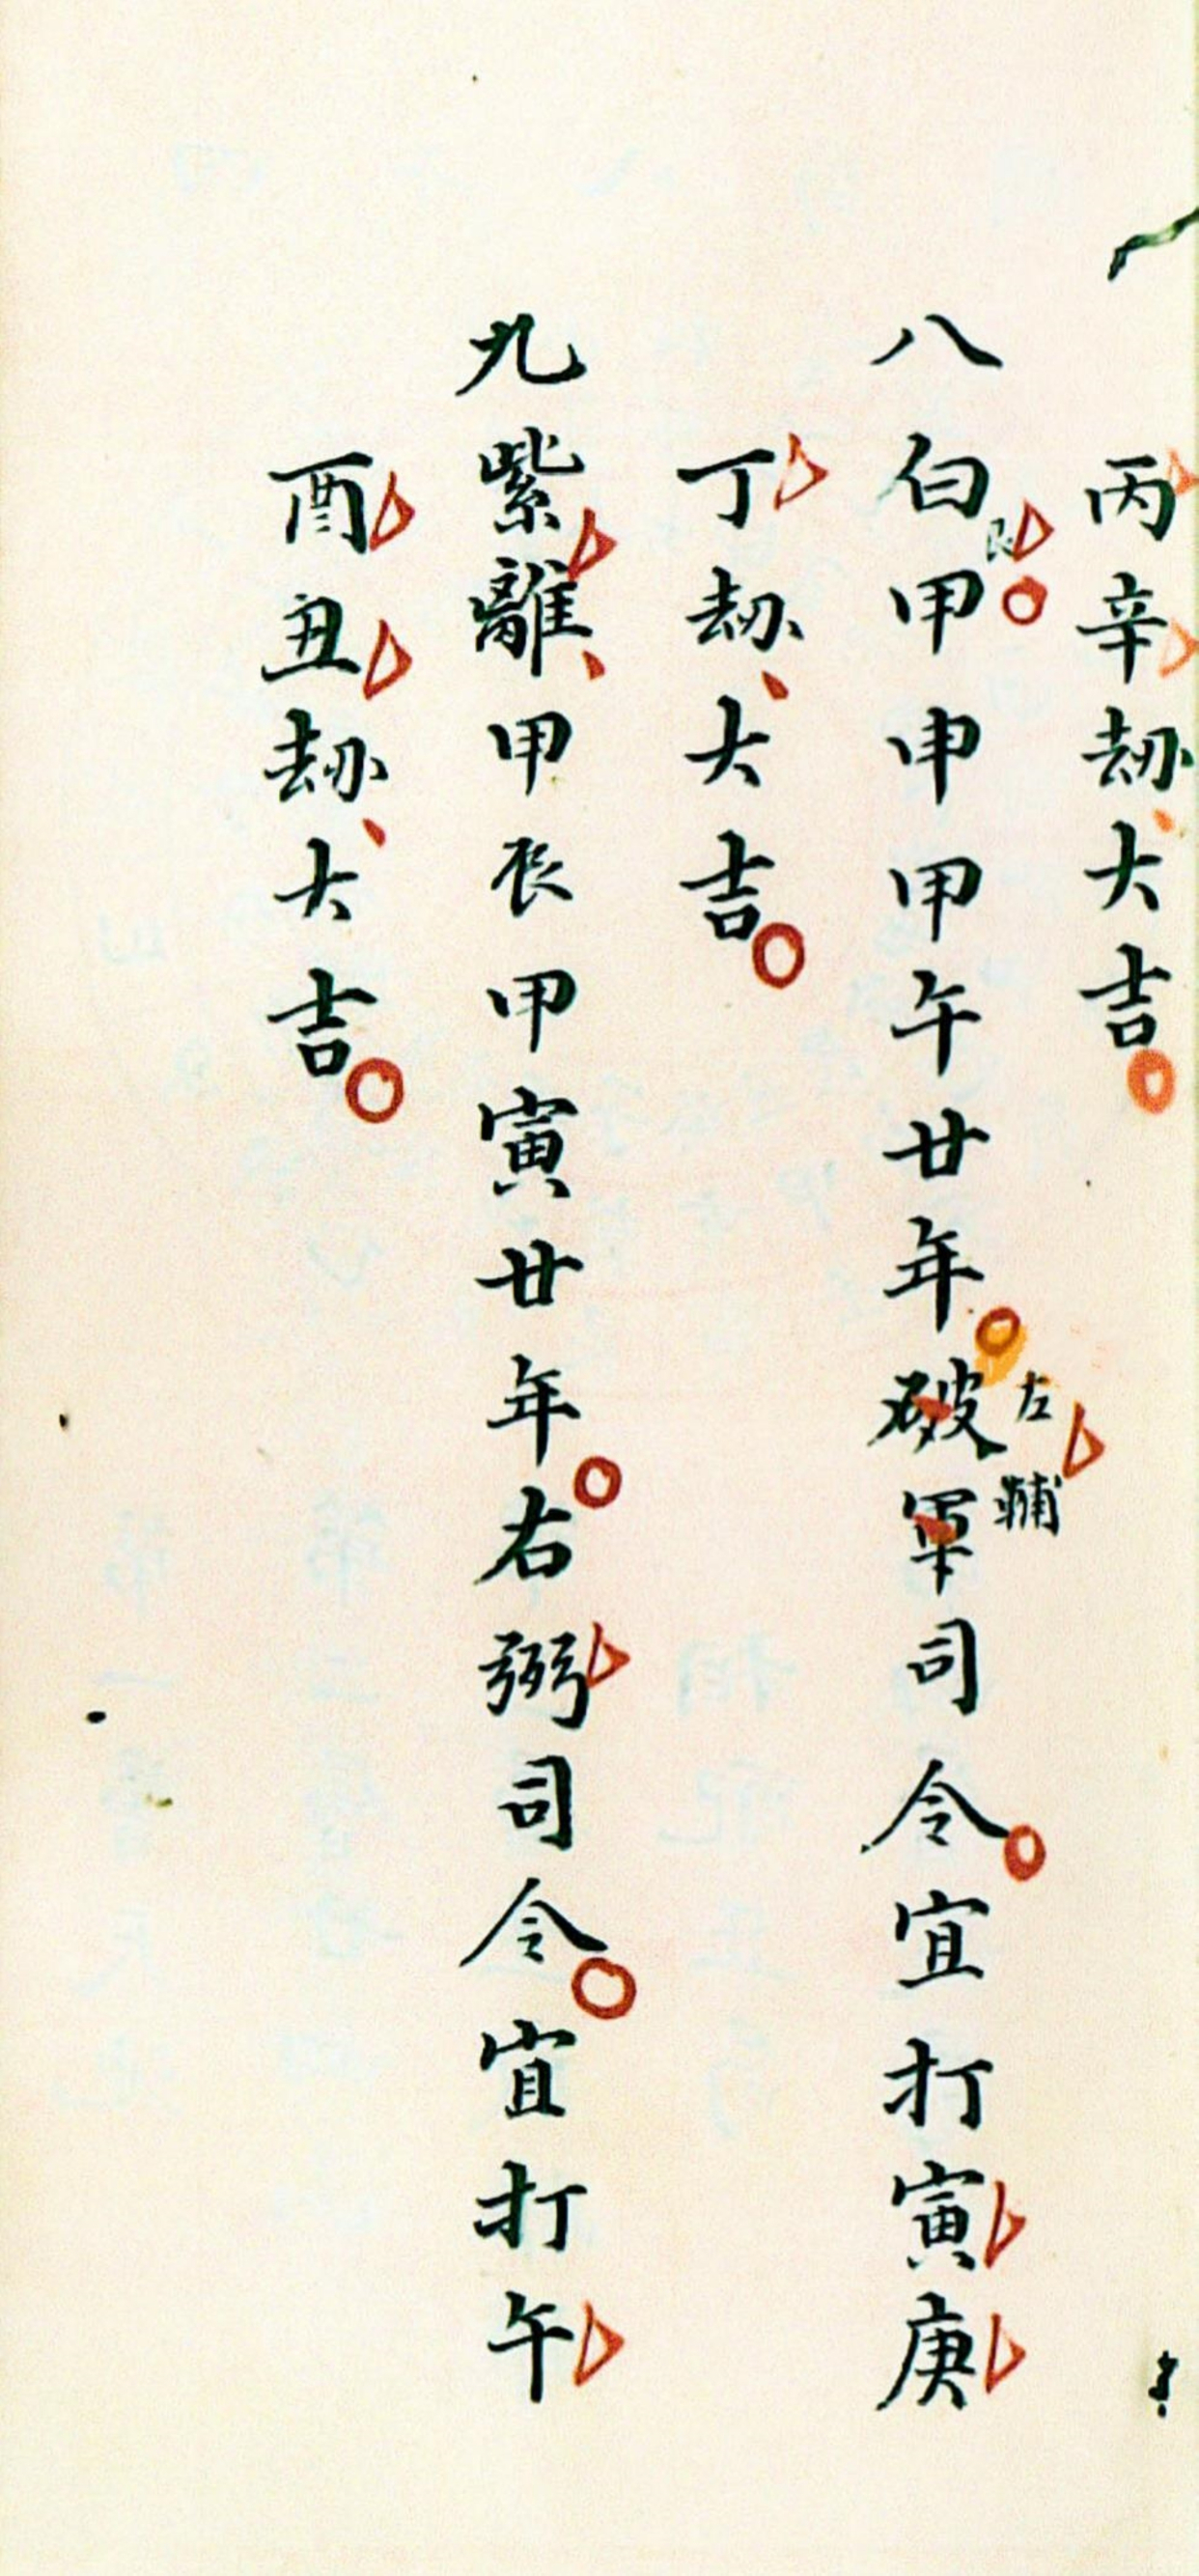 丙辛刼大吉
八白艮甲申甲午廿年破軍左輔司令宜打寅庚
丁刼大吉
九紫離甲辰甲寅廿年右弼司令宜打午
酉丑刼大吉